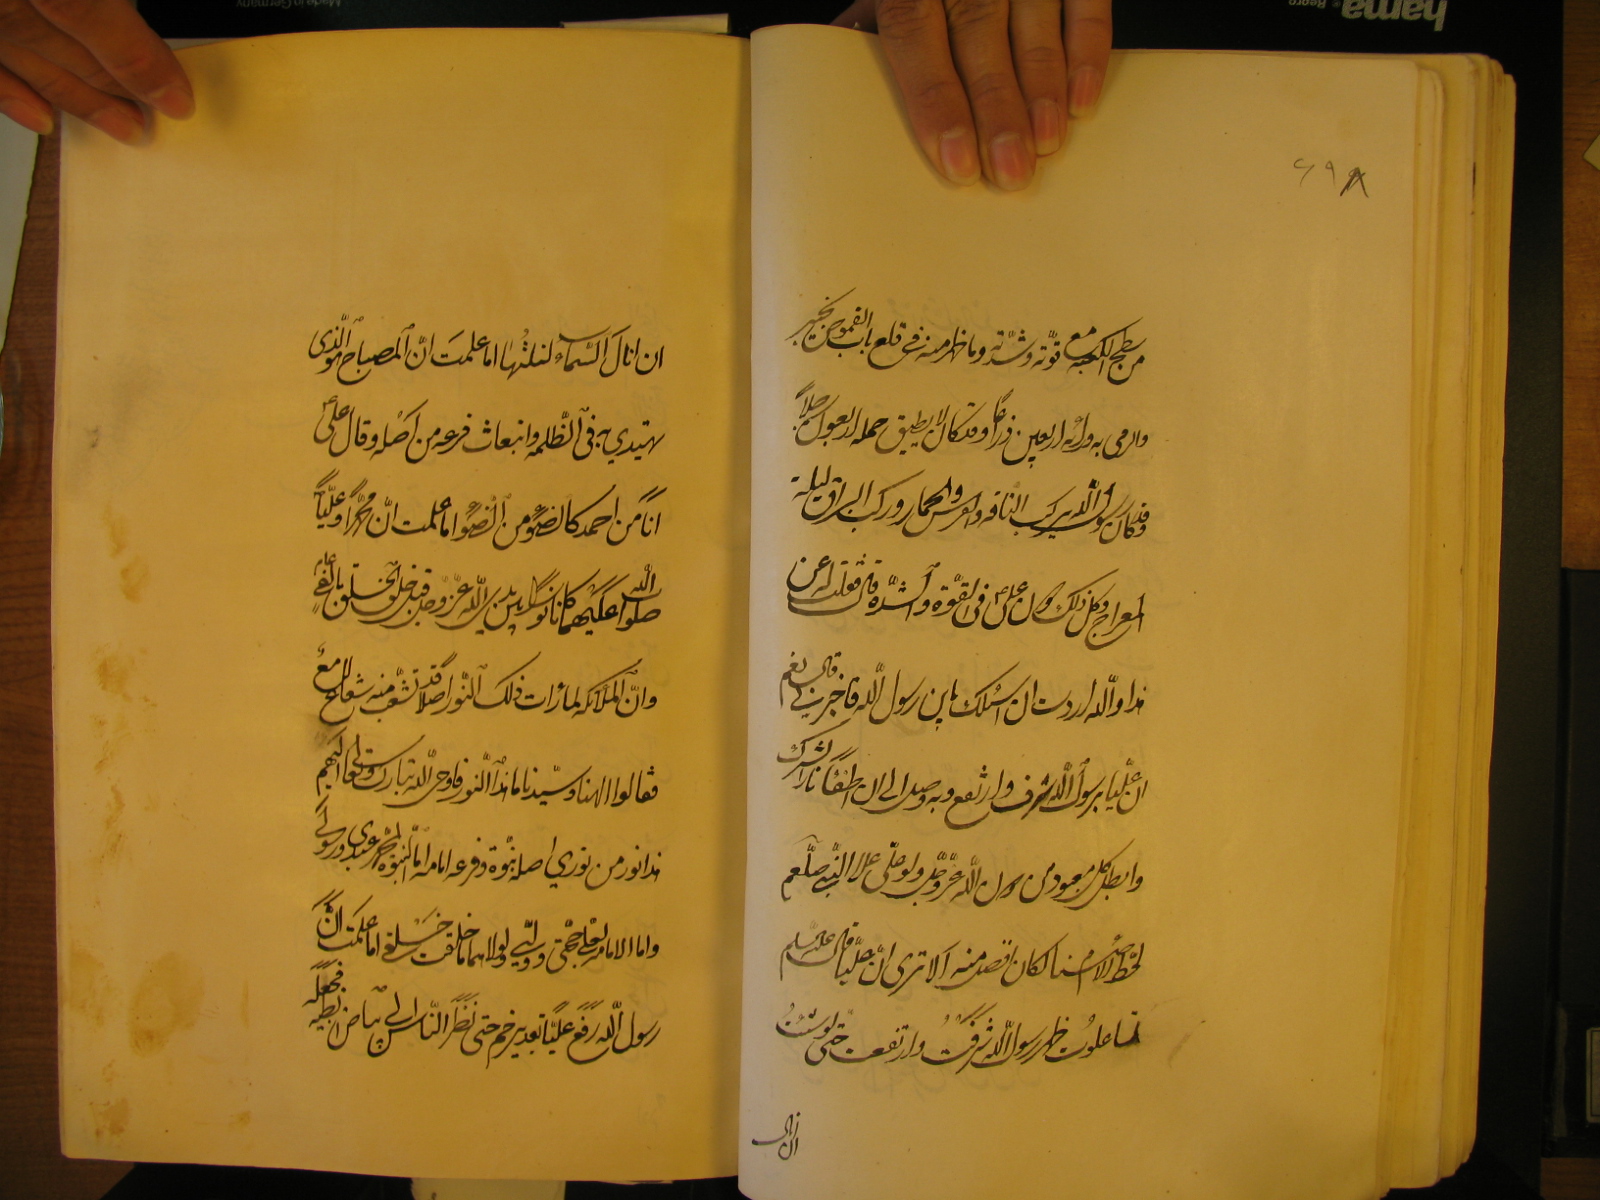 ۶۹۸
من سطح الكعبه مع قوته وشدّته وما ظهر منه فى قلع باب القموص بخيبر
والرمى به ورائه اربعين ذراعا وقد كان لا يطيق حمله اربعون رجلاً
وقد كان رسول اللّه يركب الناقه والفرس والحمار وركب البراق ليلة
المعراج وكل ذلك دون علىّ فى القوّة والشدّه قال فقلت له عن
هذا واللّه اردت ان اسئلك يابن رسول اللّه فاخبرنى قال نعم
ان عليّا برسول اللّه شرف وارتفع وبه وصل الى ان اطفأ نار الشرك
وابطل كل معبود من دون اللّه عزّ وجلّ ولو على علا النّبى صلعم
لحط الاصنام لكان اقصد منه الا ترى انّ عليّا قال عليه السلم
لمّا علوت ظهر رسول اللّه شرفت وارتفعت حتى لو شئت
ان انال
ان انال السّماء لنلتها اما علمت انّ المصباح هو الّذى
يهتدي به فى الظّلمه وانبعاث فرعه من اصله وقال علىّ
انا من احمد كالضوء من الضوء اما علمت انّ محمّداً وعليّاً
صلوات اللّه عليهما كانا نوراً بين يدى اللّه عزّ وجلّ قبل خلق الخلق بالفى عام
وانّ الملائكه لما رات ذلك النّور اصلا قد تشعّب منه شعاع لامع
فقالوا الهنا وسيّدنا ما هذا النور فاوحى اللّه تبارك وتعالى اليهم
هذا نور من نوري اصله نبوّة وفرعه امامه اما النبوّة لمحمّد عبدى ورسولى
واما الامامه لعلى حجّتى ووليّى ولولاهما ما خلقت خلقى اما علمت انّ
رسول اللّه رفع عليّاً بغدير خم حتى نظر النّاس الى بياض ابطيه فجعله
hama
Made in Germany